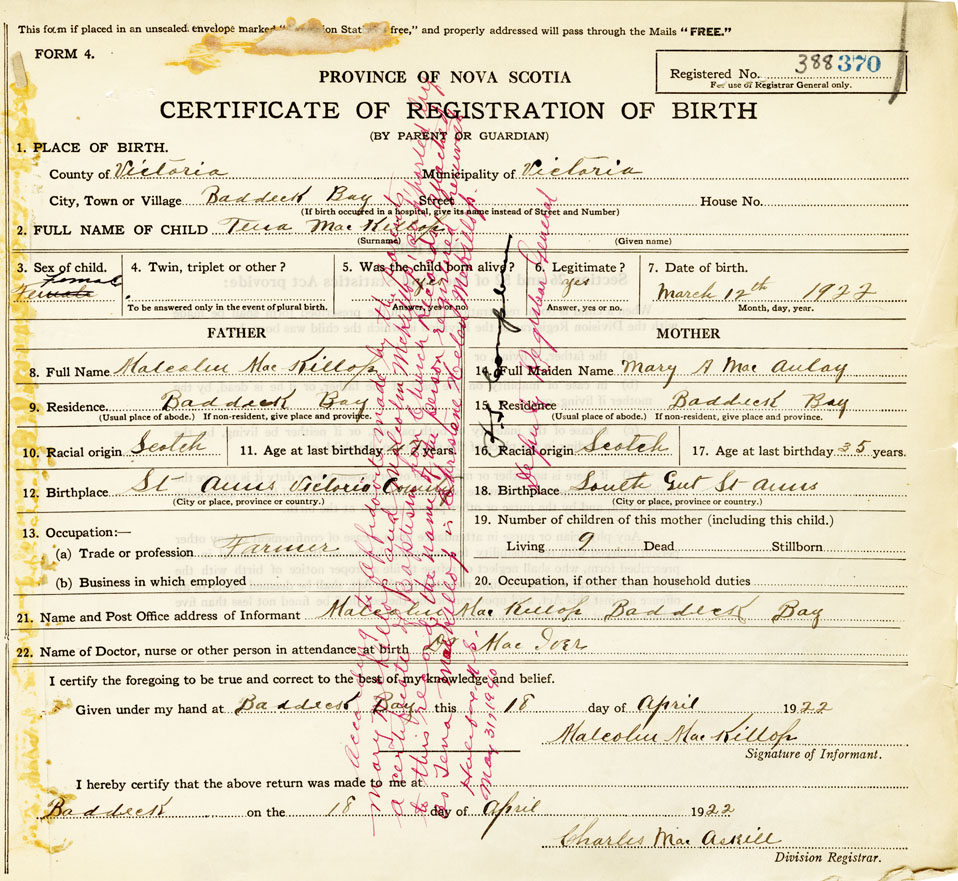 This form if placed in an unsealed envelope marked free," and properly addressed will pass through the Mails "FREE."
FORM 4.
PROVINCE OF NOVA SCOTIA
Registered No. 388 370
For use of Registrar General only.
CERTIFICATE OF REGISTRATION OF BIRTH
(BY PARENT OR GUARDIAN)
1. PLACE OF BIRTH.
County of Victoria Municipality of Victoria
City, Town or Village Baddeck Bay Street House No.
(If birth occurred in a hospital, give its name instead of Street and Number)
2. FULL NAME OF CHILD Tena MacKillop
(Surname) (Given name)
3. Sex of child. 4. Twin, triplet or other ? 5. Was the child born alive? 6. Legitimate ? 7. Date of birth.
Female yes yes March 12th 1922
To be answered only in the event of plural birth. Answer, yes or no. Answer, yes or no. Month, day, year.
FATHER MOTHER
8. Full Name Malcolm MacKillop 14. Full Maiden Name Mary A MacAulay
9. Residence Baddeck Bay 15. Residence Baddeck Bay
(Usual place of abode.) If non-resident, give place and province. (Usual place of abode.) If non-resident, give place and province.
10. Racial origin Scotch 11. Age at last birthday years. 16. Racial origin Scotch 17. Age at last birthday 35 years.
12. Birthplace St Anns Victoria County 18. Birthplace South Gut St Anns
(City or place, province or country.) (City or place, province or country.)
13. Occupation:— 19. Number of children of this mother (including this child.)
(a) Trade or profession Farmer Living 9 Dead Stillborn
(b) Business in which employed 20. Occupation, if other than household duties
21. Name and Post Office address of Informant Malcolm MacKillop Baddeck Bay
22. Name of Doctor, nurse or other person in attendance at birth Dr MacIver
I certify the foregoing to be true and correct to the best of my knowledge and belief.
Given under my hand at Baddeck Bay this 18 day of April 1922
Malcolm MacKillop
Signature of Informant.
I hereby certify that the above return was made to me at
Baddeck on the 18 day of April 1922
Charles MacAskill
Division Registrar.
According to affidavits made by the parents
Mary McKillop and Malcolm McKillop, supported by
a certificate of Baptism from Church records attached
to this record the name of the person registered hereunder
as Tena MacKillop is Christene Helen McKillop.
May 31, 1940
Deputy Registrar General